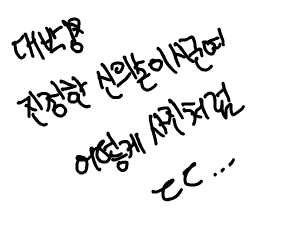 대박용
진정한 신의손이시군여
어떻게 사진처럼
ㄷㄷ...